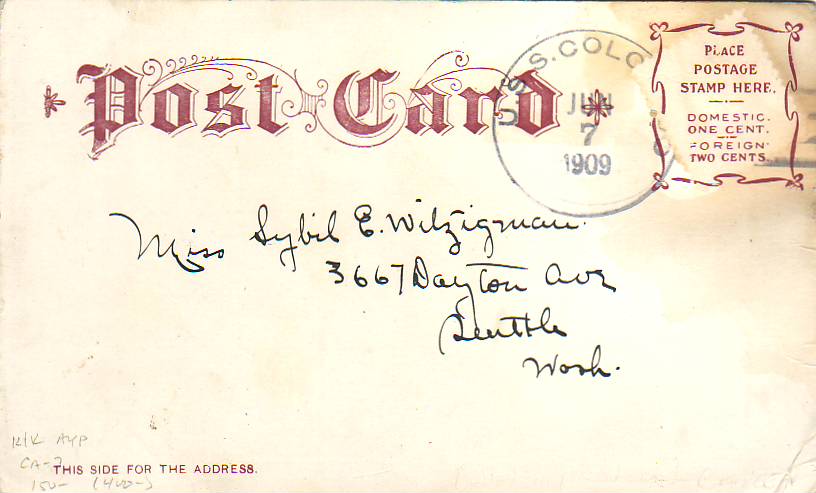 Post Card
U.S.S. COLO
JUN
7
1909
PLACE
POSTAGE
STAMP HERE.
DOMESTIC.
ONE CENT.
FOREIGN
TWO CENTS.
Miss Sybil E. Witzigman
3667 Dayton Ave
Seattle
Wash.
AYP
CA-7
150- (400-)
THIS SIDE FOR THE ADDRESS.